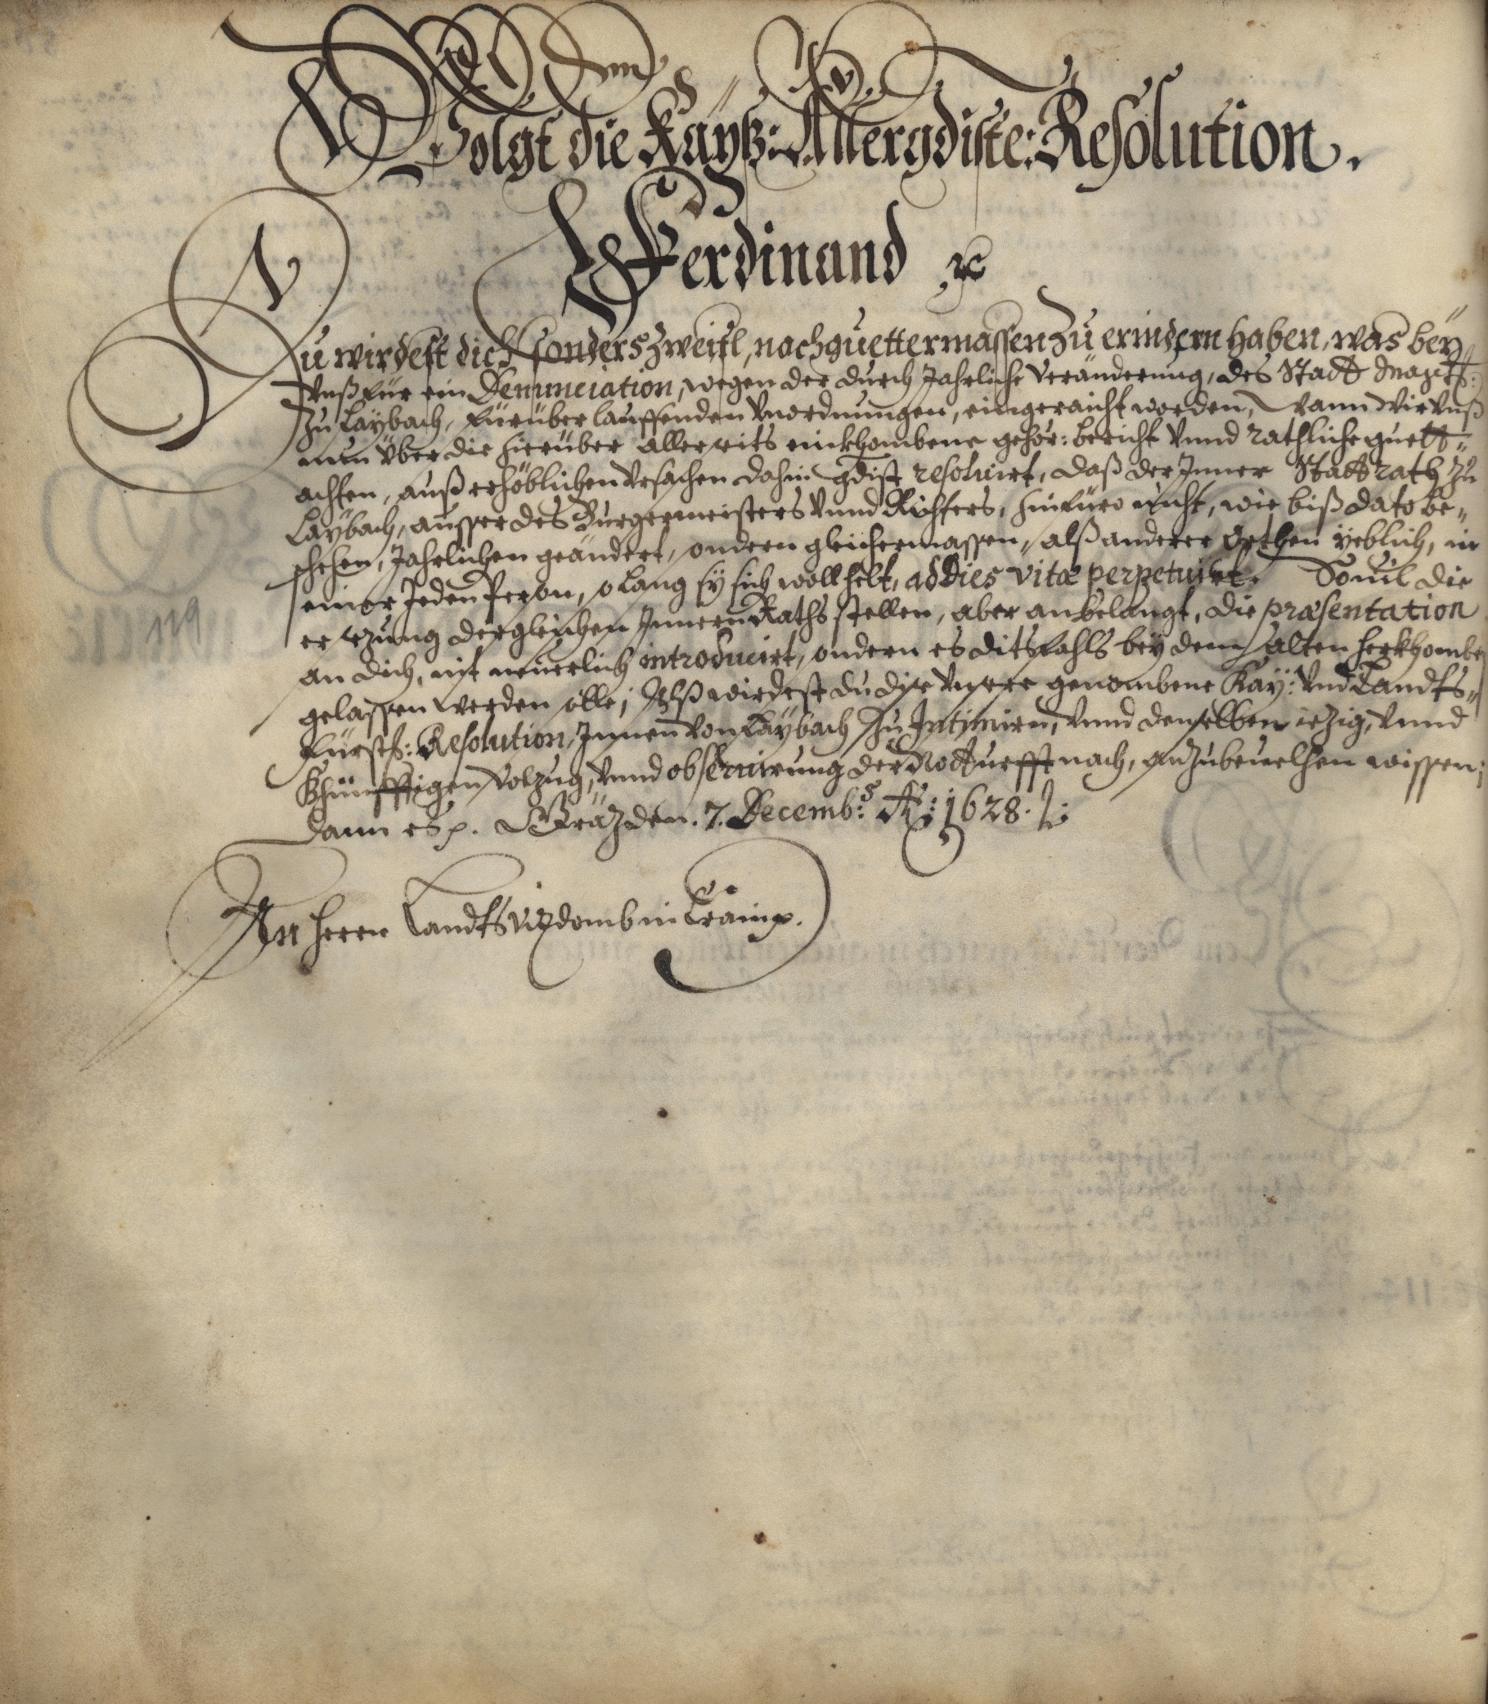 Folgt die Kayß: Allergdiste: Resolution.
Ferdinand ꝛc
Du wirdest dich sonders Zweifl, noch guettermassen Zu erindern haben, was bey
Unß für ein Denunciation, wegen der durch Jahrliche veränderung, des Statt Magists:
Zu Laybach, fürüber lauffenden Unordnungen, eingeraicht worden, Wann Wir Unß
nun über die hierüber allerseits einkhombene gehör: bericht Unnd rathliche guett=
achten, auß erhöblichen Ursachen dahin gdist resoluirt, daß der Inner Stattrath Zu
Laybach, ausser des Burgermeisters Unnd Richters, hinfüro nicht, wie biß dato be=
schehen, Jahrlichen geändert, sondern gleichermassen, alß anderer Orthen yeblich, in
einer Jeden Person, so lang sy sich wollhelt, ad dies vitæ perpetuirt. Souil die
ersezung dergleichen Innern Raths stellen, aber anbelangt, die præsentation
an dich, nit neuerlich introducirt, sondern es ditsfahls bey dem alten herkhomben
gelassen werden solle; Alß wirdest du dise Unsere genombene Kay: Und Landts=
fürstl: Resolution, Innen von Laybach Zu Intimirn, Unnd denselben iezig, Unnd
Khünfftigen Volzug, Unnd obseruirung der Notturfft nach, anZubeuelhen wissen;
Dann es p. Gräz den. 7. Decemb: A: 1628.
An Herrn Landtsvizdomb in Crain p.
119